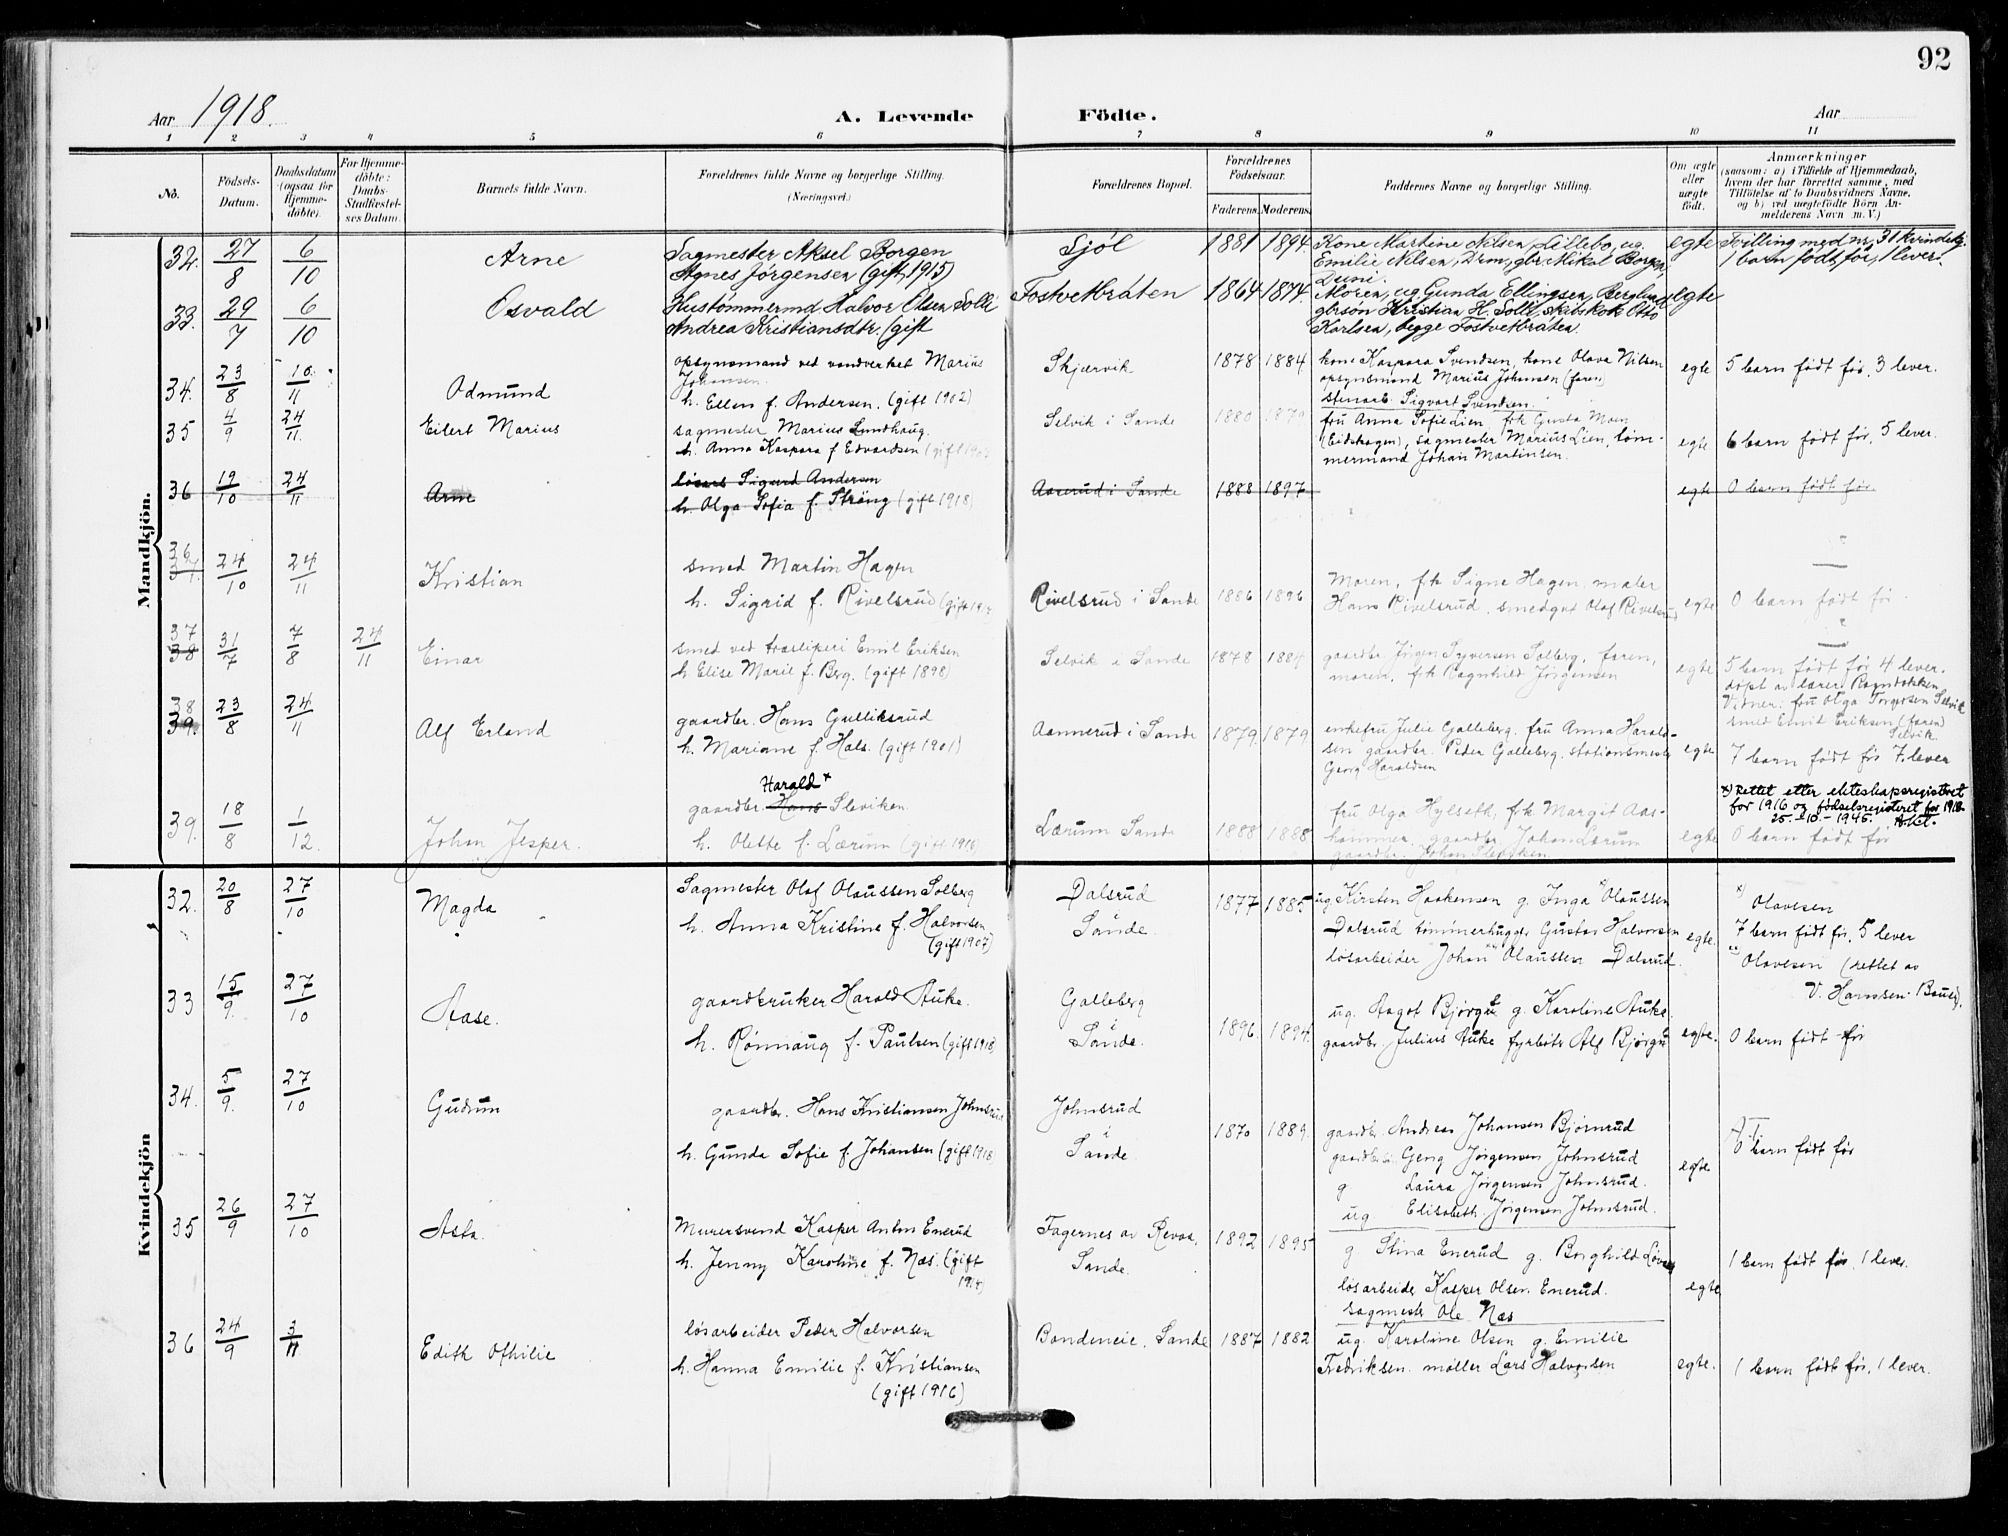 92
Aar 1918.
A. Levende Födte.
Aar
1 2 3 4 5 6 7 8 9 10 11
No.
Födsels-Datum.
Daabsdatum (ogsaa for Hjemme-döbte).
For Hjemme-döbte: Daabs-Stadfæstel-ses Datum.
Barnets fulde Navn.
Forældrenes fulde Navne og borgerlige Stilling. (Næringsvei.)
Forældrenes Bopæl.
Forældrenes Födselsaar.
Faderens. Moderens.
Faddernes Navne og borgerlige Stilling.
Om ægte eller uægte födt.
Anmærkninger
(saasom: a) i Tilfælde af Hjemmedaab, hvem der har forrettet samme, med Tilföielse af to Daabsvidners Navne, og b) ved uægtefödte Börn An-melderens Navn m. V.)
Mandkjön.
32. 27/8 6/10 Arne
Sagmester Aksel Borgen
Agnes Jørgensen (gift 1915)
Sjøl 1881 1894.
Kone Martine Nilsen, Lillebo, ug.
Emilie Nelsen, Drm, gbr. Nikol. Borgen
egte Tvilling med nr. 31 kvindekj.
1 barn født før, 1 lever.
33. 29/7 6/10 Osvald
Hustømmermd Halvor Olsen Solli
Andrea Kristiansdtr. (gift
Fostvetbråten 1864 1874.
Moren, ug. Gunda Ellingsen, Berglund
gbrsøn Kristian H. Solli, skibskok Otto
Karlsen, begge Fostvetbråten.
egte
34. 23/8 10/11 Odmund
opsynsmand ved vandverket Marius
Johansen.
h. Ellen f. Andersen. (gift 1902)
Skjærvik 1878 1884
kone Kaspara Svendsen, kone Olava Nilsen
opsynsmand Marius Johansen (faren)
stenarb. Sigvart Svendsen.
egte 5 barn født før, 3 lever.
35 4/9 24/11 Eilert Marius
sagmester Marius Sundhaug.
h. Anna Kaspara f. Edvardsen (gift
Selvik i Sande 1880 1879
fru Anna Sofie Lien frk Gusta Moen
(Eidskogen), sagmester Marius Lien, tøm-
mermand Johan Martinsen.
egte 6 barn født før, 5 lever.
36 19/10 24/11 Arne
løsarb Sigurd Andersen
h. Olga Sofia f. Strøng (gift 1918)
Aaserud i Sande 1888 1897
egte 0 barn født før
36 37. 24/10 24/11 Kristian
smed Martin Hagen
h. Sigrid f. Rivelsrud (gift
Rivelsrud i Sande 1886 1896
Moren, frk Signe Hagen, maler
Hans Rivelsrud, smedgut Olaf Rivelsrud
egte 0 barn født før.
37 38 31/7 7/8 24/11 Einar
smed ved træsliperi Emil Eriksen
h. Elise Marie f. Berg. (gift 1898)
Selvik i Sande 1878 1884
gaardbr. Jørgen Syversen Solberg, faren,
moren, frk Ragnhild Jørgensen
egte 5 barn født før 4 lever.
døpt av lærer
Vidner: fru Olga Torgersen Selvik
smed Emil Eriksen (faren)
Selvik.
38 39. 23/8 24/11 Alf Erland
gaardbr. Hans Gulliksrud
h. Mariane f. Hals. (gift 1901)
Aannerud i Sande 1879 1879
enkefru Julie Galleberg. fru Anna Harald-
sen gaardbr. Peder Galleberg, stationsmester
Georg Haraldsen
egte 7 barn født før 7 lever
39. 18/8 1/12. Johan Jesper.
Harald x
gaardbr. Hans Sleviken.
h. Olette f. Lærum (gift 1916)
Lærum Sande 1888 1888
fru Olga Hylseth, frk Margit Aas-
hammer, gaardbr. Johan Lærum
gaardbr. Johan Sleviken.
x) Rettet etter ekteskapsregistret
for 1916 og fødselsregistret for 1918
25.-10.-1945.
egte 0 barn født før
Kvindekjön
32. 20/8 27/10 Magda
Sagmester Olaf Olaussen Solberg
h. Anna Kristine f. Halvorsen
(gift 1907)
Dalsrud
i
Sande. 1877 1885
ug. Kirsten Haakensen g. Inga x) Olaussen
Dalsrud tømmerhugger Gustav Halvorsen
løsarbeider Johan xx Olaussen Dalsrud.
egte.
x) Olavesen
7 barn født før, 5 lever
xx Olavesen (rettet av
V. Harnsen
33 15/9. 27/10 Aase.
gaardbruker Harald Auke.
h. Rønnaug f. Paulsen (gift 1918)
Galleberg
i
Sande. 1896. 1894.
ug. Aagot Bjørgu g. Karoline Auke.
gaardbr. Julius Auke fyrbøter Alf Bjørgu
egte. 0 barn født før
34. 5/9. 27/10 Gudrun
gaardbr. Hans Kristiansen Johnsrud
h. Gunda Sofie f. Johansen (gift 1918)
Johnsrud
i
Sande. 1870 1889.
gaardbr. Andreas Johansen Bjørnrud
gaardbr Georg Jørgensen Johnsrud
g Laura Jørgensen Johnsrud.
ug Elisabeth Jørgensen Johnsrud.
egte 0 barn født før
35 26/9 27/10 Asta.
Murersvend Kasper Anton Enerud
h. Jenny Karoline f. Næs. (gift
1914)
Fagernes av Revaa,
Sande. 1892 1895
g. Stina Enerud g. Borghild
løsarbeider Kasper Olsen Enerud.
sagmester Ole Næs
egte 1 barn født før, 1 lever.
36 24/9 3/11 Edith Othilie
løsarbeider Peder Halvorsen
h. Hanna Emilie f. Kristiansen
(gift 1916)
Bondeneie, Sande 1887 1882
ug. Karoline Olsen g. Emilie
Fredriksen. møller Lars Halvorsen
egte. 1 barn født før, 1 lever.